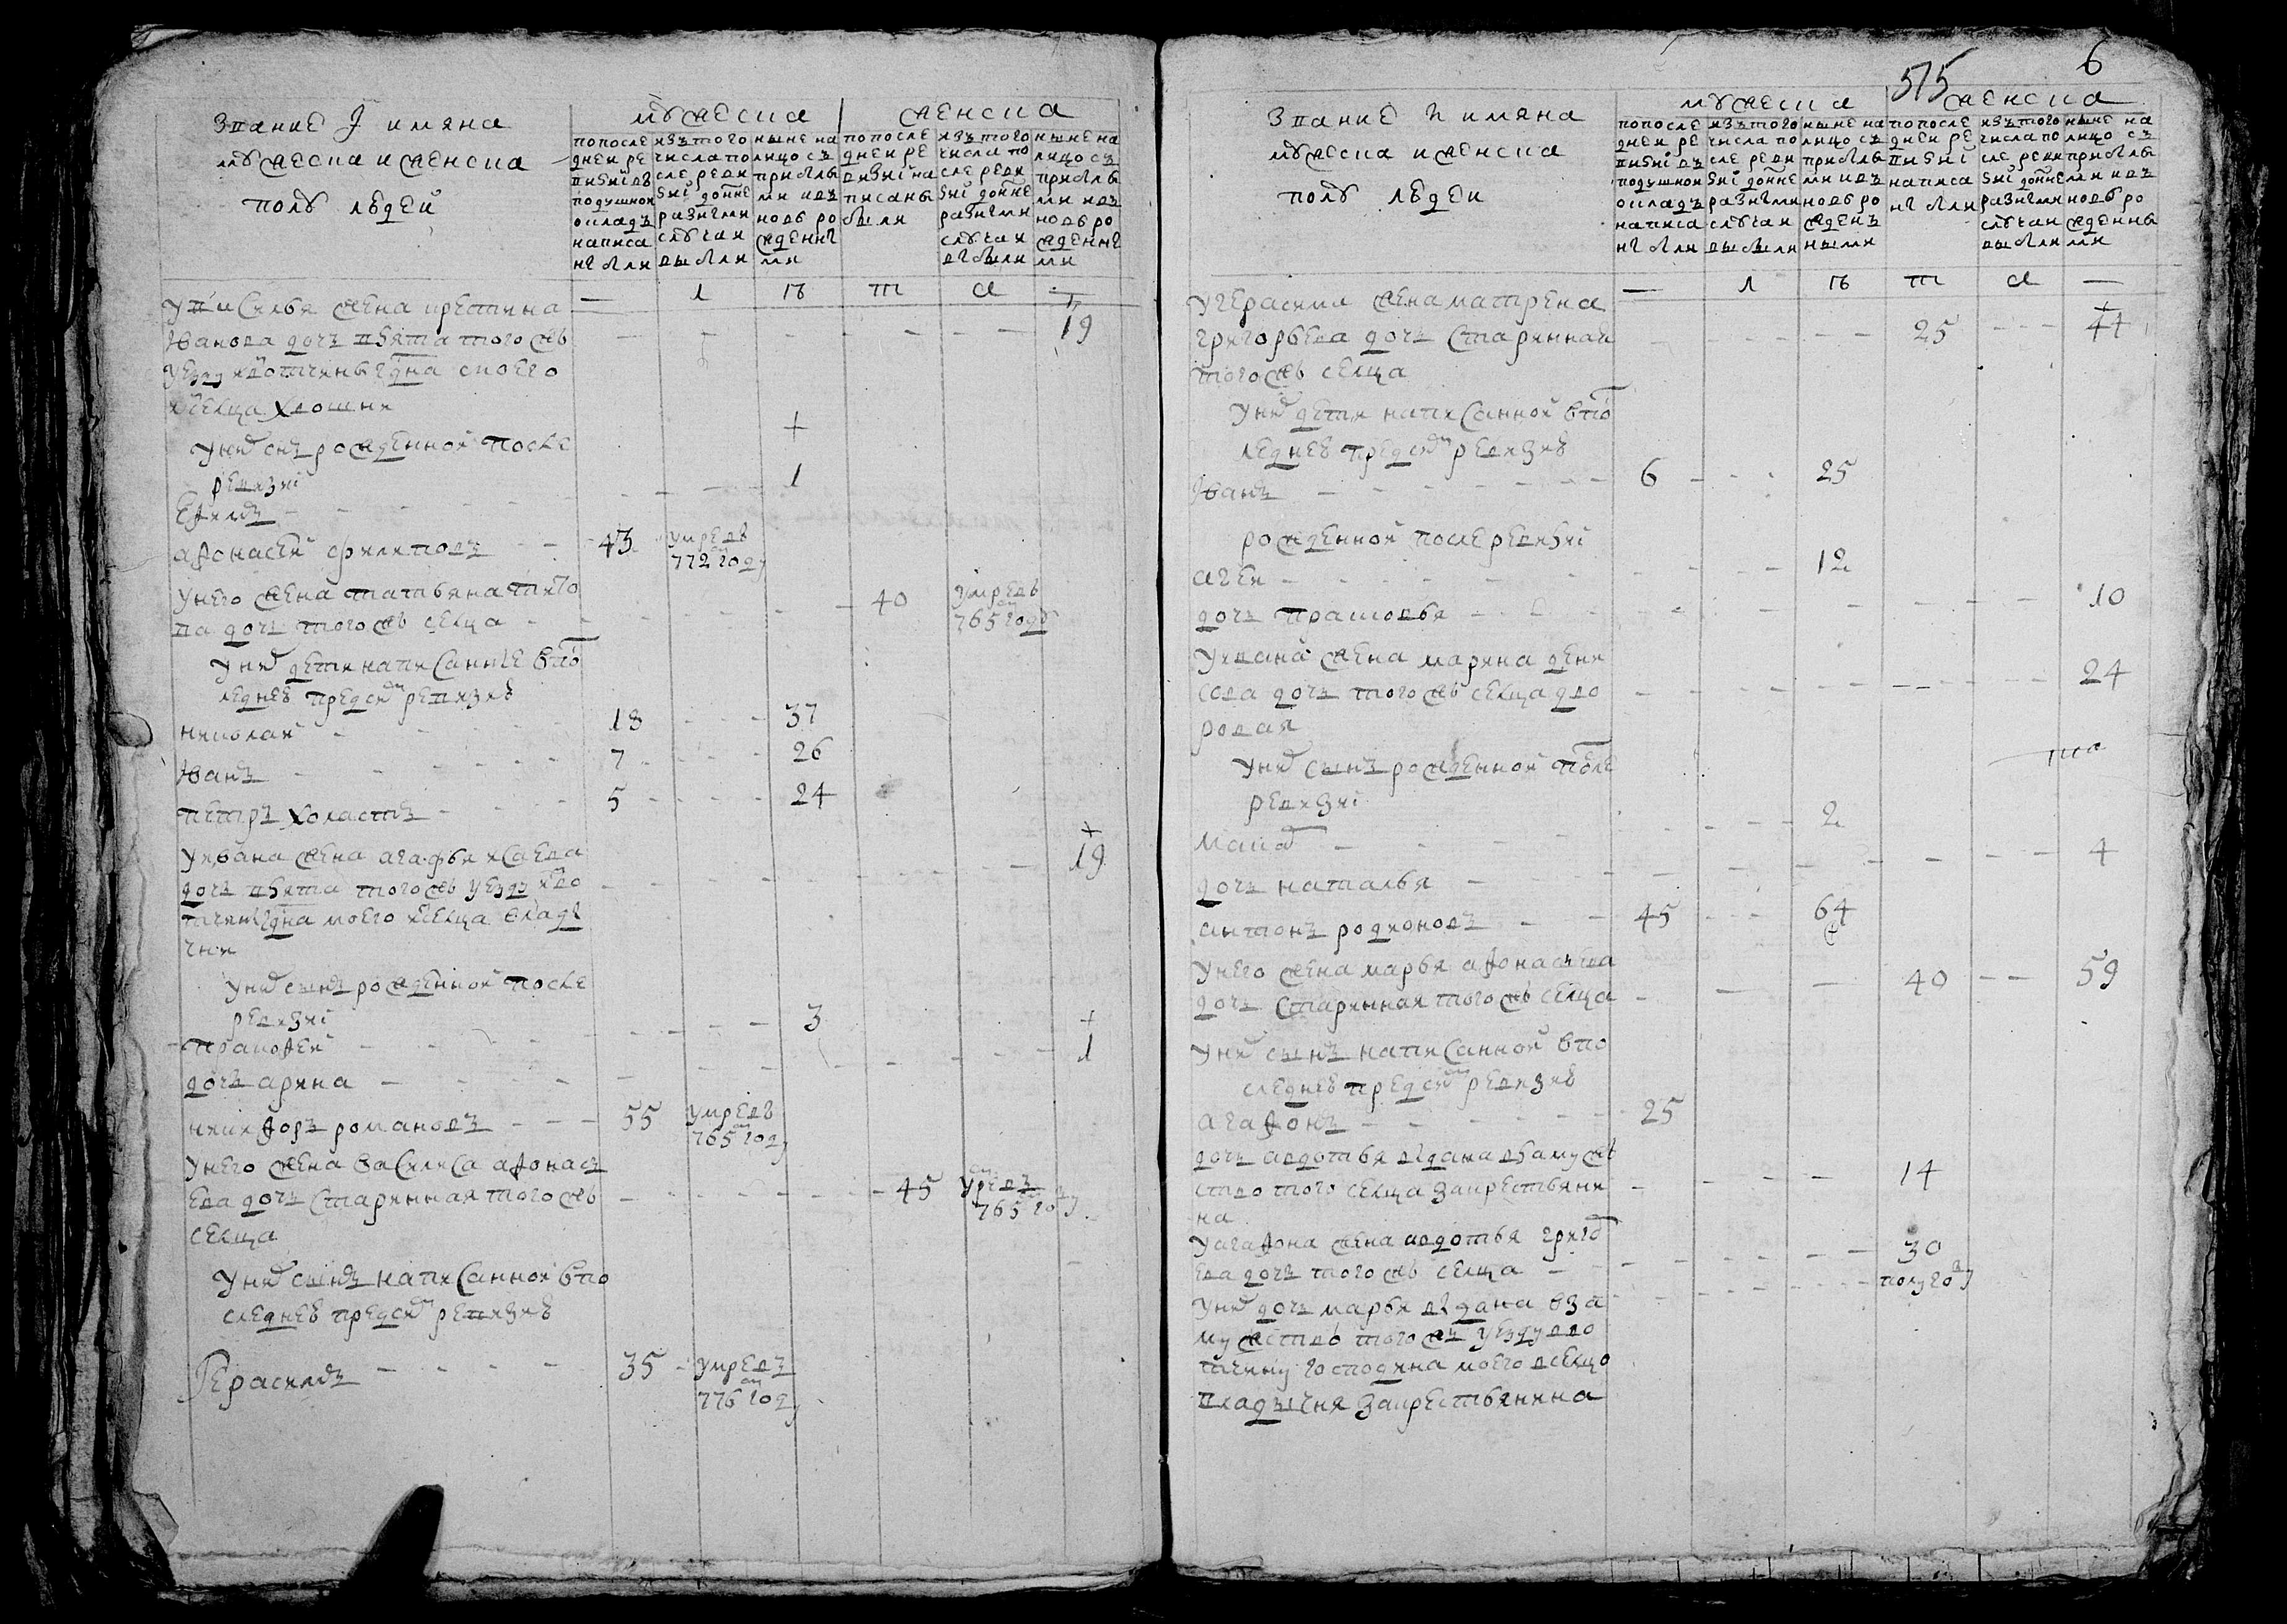 звание и имяна
мужеска и женска
полу людей
мужеска
женска
по после
дней ре
визиі въ
подушной
окладъ
написа
ны были
изъ того
числа по
сле реви
зиі до нне
разнчми
случаи
выбыли
ныне на
лицо съ
прибылы
ми и въ
новь ро
жденны
ми
по после
дней ре
визиі на
писаны
были
изъ того
числа по
сле реви
зиі до нне
разнчми
случаи
выбыли
ныне на
лицо съ
прибылы
ми и въ
новь ро
жденны
ми
— л п т ж —
жена
Иванова дочь взята того жь 19
уезду вотчины гдна моего
селца
у них снъ рожденной после
ревизиі
Ефимъ 1
Афонасей Филиповъ 43 умре въ
772 году
у него жена Татьяна
дочь того жь селца 40 умре въ
765 году
у них дети написанные в по
следней пред сим ревизиі
Николай 18 37
Иванъ 7 26
Петръ холастъ 5 24
у Ивана жена Агафья Исаева
дочь взята того жь уезду из во 19
тчины гдна моего селца Влады
чни
у них сынъ рожденной после
ревизиі
Тимофей 3
дочь Арина 1
Никифоръ Романовъ 55 умре въ
765 году
у него жена Василиса Афонась
ева дочь старинная того жь 45 умре въ
765 году
селца
у них сынъ написанной в по
следней пред сим ревизиі
Герасимъ 35 умре въ
776 году
575 6
звание и имяна
мужеска и женска
полу людей
мужеска
женска
по после
дней ре
визиі въ
подушной
окладъ
написа
ны были
изъ того
числа по
сле реви
зиі до нне
разнчми
случаи
выбыли
ныне на
лицо съ
прибылы
ми и въ
новь ро
жденъ
ными
по после
дней ре
визиі
написа
ны были
изъ того
числа по
сле реви
зиі до нне
разнчми
случаи
выбыли
ныне на
лицо съ
прибылы
ми и въ
новь ро
жденны
ми
— л п т ж —
у Герасима жена Матрена
Григорьева дочь старинная 25 44
того жь селца
у них дети написанной в по
следней пред сим ревизиі
Иванъ 6 25
рожденной после ревизиі
Агей 12
дочь Прасковья 10
у Ивана жена Марина Дени
сова дочь того жь селца дво 24
ровая
у них сынъ рожденной после
ревизиі
2
дочь Наталья 4
Антонъ Родионовъ 45 64
у него жена Марья Афонасьева
дочь старинная того жь селца 40 59
у них сынъ написанной в по
следней пред сим ревизиі
Агафонъ 25
дочь Авдотья выдана в замуже
ство того селца за крестьяни 14
на
у Агафона жена Авдотья Григо
ева дочь того жь селца 30
у них дочь Марья выдана в за полугоду
мужство того жъ уезду в во
тчину господина моего в селцо
Владычня за крестьянина